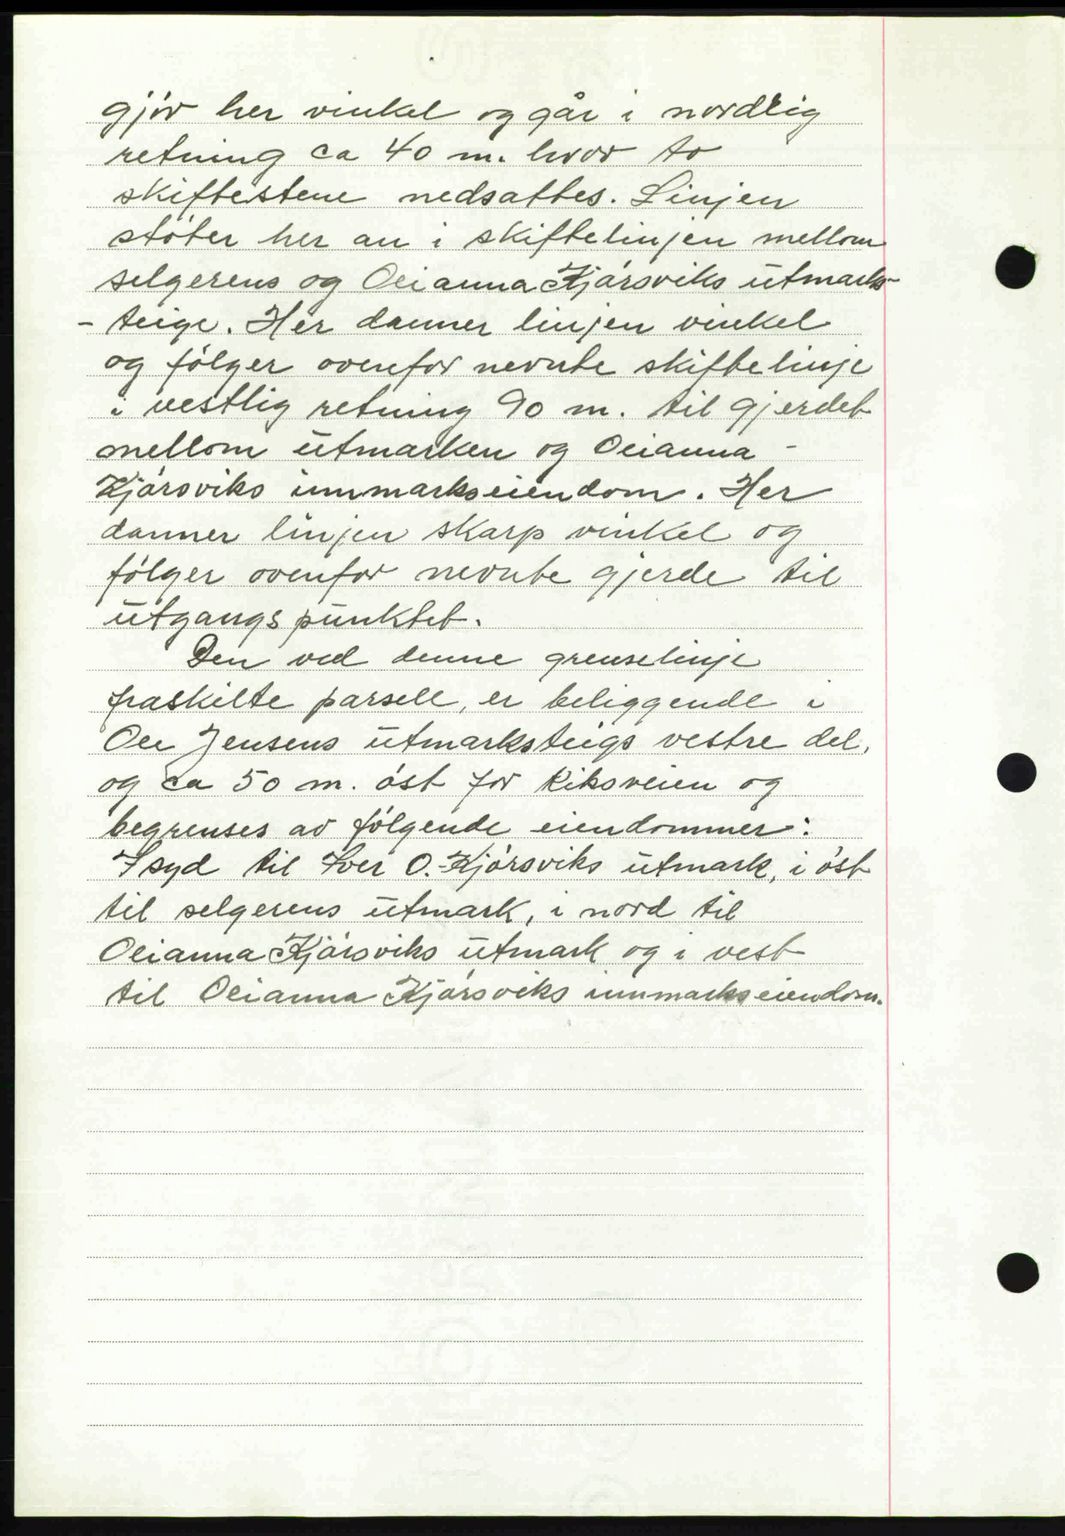 gjör her vinkel og går i nordlig
retning ca 40 m. hvor to
skiftestene nedsattes. Linjen
støter her an i skiftelinjen mellom
selgerens og Oleianna Kjörsviks utmarks-
- teige. Her danner linjen vinkel
og fölger ovenfor nevnte skiftelinje
i vestlig retning 90 m. til gjerdet
mellom utmarken og Oleianna -
Kjörsviks innmarkseiendom. Her
danner linjen skarp vinkel og
fölger ovenfor nevnte gjerde til
utgangspunktet.
Den ved denne grenselinje
fraskilte parsell, er beliggende i
Ole Jensens utmarksteigs vestre del,
og ca 50 m. öst for Riksveien og
begrenses av fölgende eiendommer:
I syd til Iver O. Kjörsviks utmark, i öst
til selgerens utmark, i nord til
Oleianna Kjörsviks utmark og i vest
til Oleianna Kjörsviks innmarkseiendom.